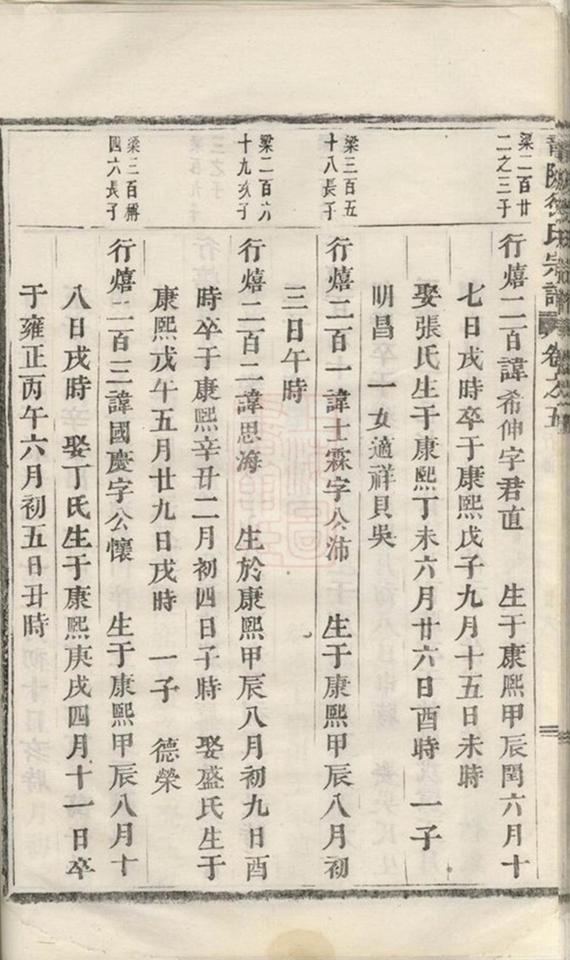 氏宗譜 卷之五
梁二百廿
二之三子
行熺二百諱希伸字君直 生于康熙甲辰閏六月十
七日戌時卒于康熙戊子九月十五日未時
娶張氏生于康熙丁未六月廿六日酉時 一子
明昌 一女適祥貝吳
梁三百五
十八長子
行熺二百一諱士霖字公沛 生于康熙甲辰八月初
三日午時
梁二百六
十九次子
行熺二百二諱思海 生於康熙甲辰八月初九日酉
時卒于康熙辛丑二月初四日子時 娶盛氏生于
康熙戊午五月廿九日戌時 一子 德榮
梁三百
四六長子
行熺二百三諱國慶字公懷 生于康熙甲辰八月十
八日戌時 娶丁氏生于康熙庚戌四月十一日卒
于雍正丙午六月初五日丑時